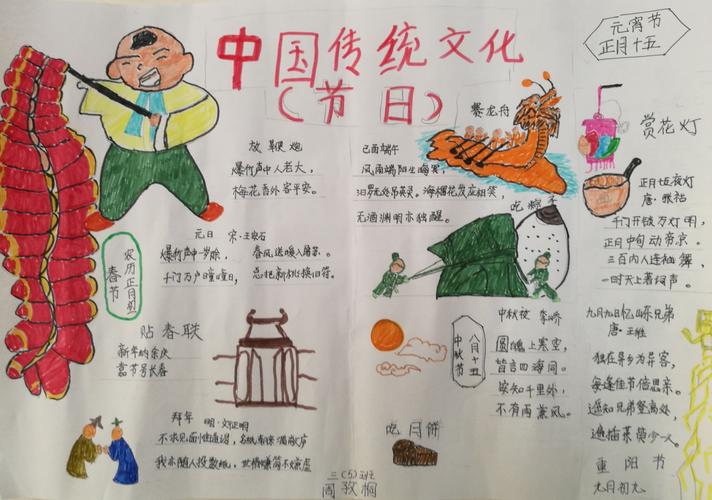 中国传统文化
（节日）
元宵节
正月十五
放鞭炮
爆竹声中人老大，
梅花香外客平安。
己酉端午
风雨端阳生晦冥，
汨罗无处吊英灵。海榴花发应相笑，
无酒渊明亦独醒。
赛龙舟
吃粽子
赏花灯
正月十五夜灯
唐·张祜
千门开锁万灯明，
正月中旬动帝京。
三百内人连袖舞，
一时天上著词声。
农历正月初一
春节
元日 宋·王安石
爆竹声中一岁除， 春风送暖入屠苏。
千门万户曈曈日， 总把新桃换旧符。
贴春联
新年纳余庆
嘉节号长春
拜年 明·文征明
不求见面惟通谒，名纸朝来满敝庐
我亦随人投数纸，世情嫌简不嫌虚
八月十五
中秋节
中秋夜 李峤
圆魄上寒空，
皆言四海同。
安知千里外，
不有雨兼风。
吃月饼
九月九日忆山东兄弟
唐·王维
独在异乡为异客，
每逢佳节倍思亲。
遥知兄弟登高处，
遍插茱萸少一人。
重阳节
九月初九
三（5）班
周 桐